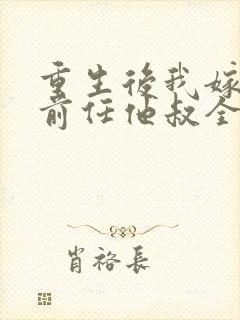 重生後我嫁
前任他叔全
肖裕長